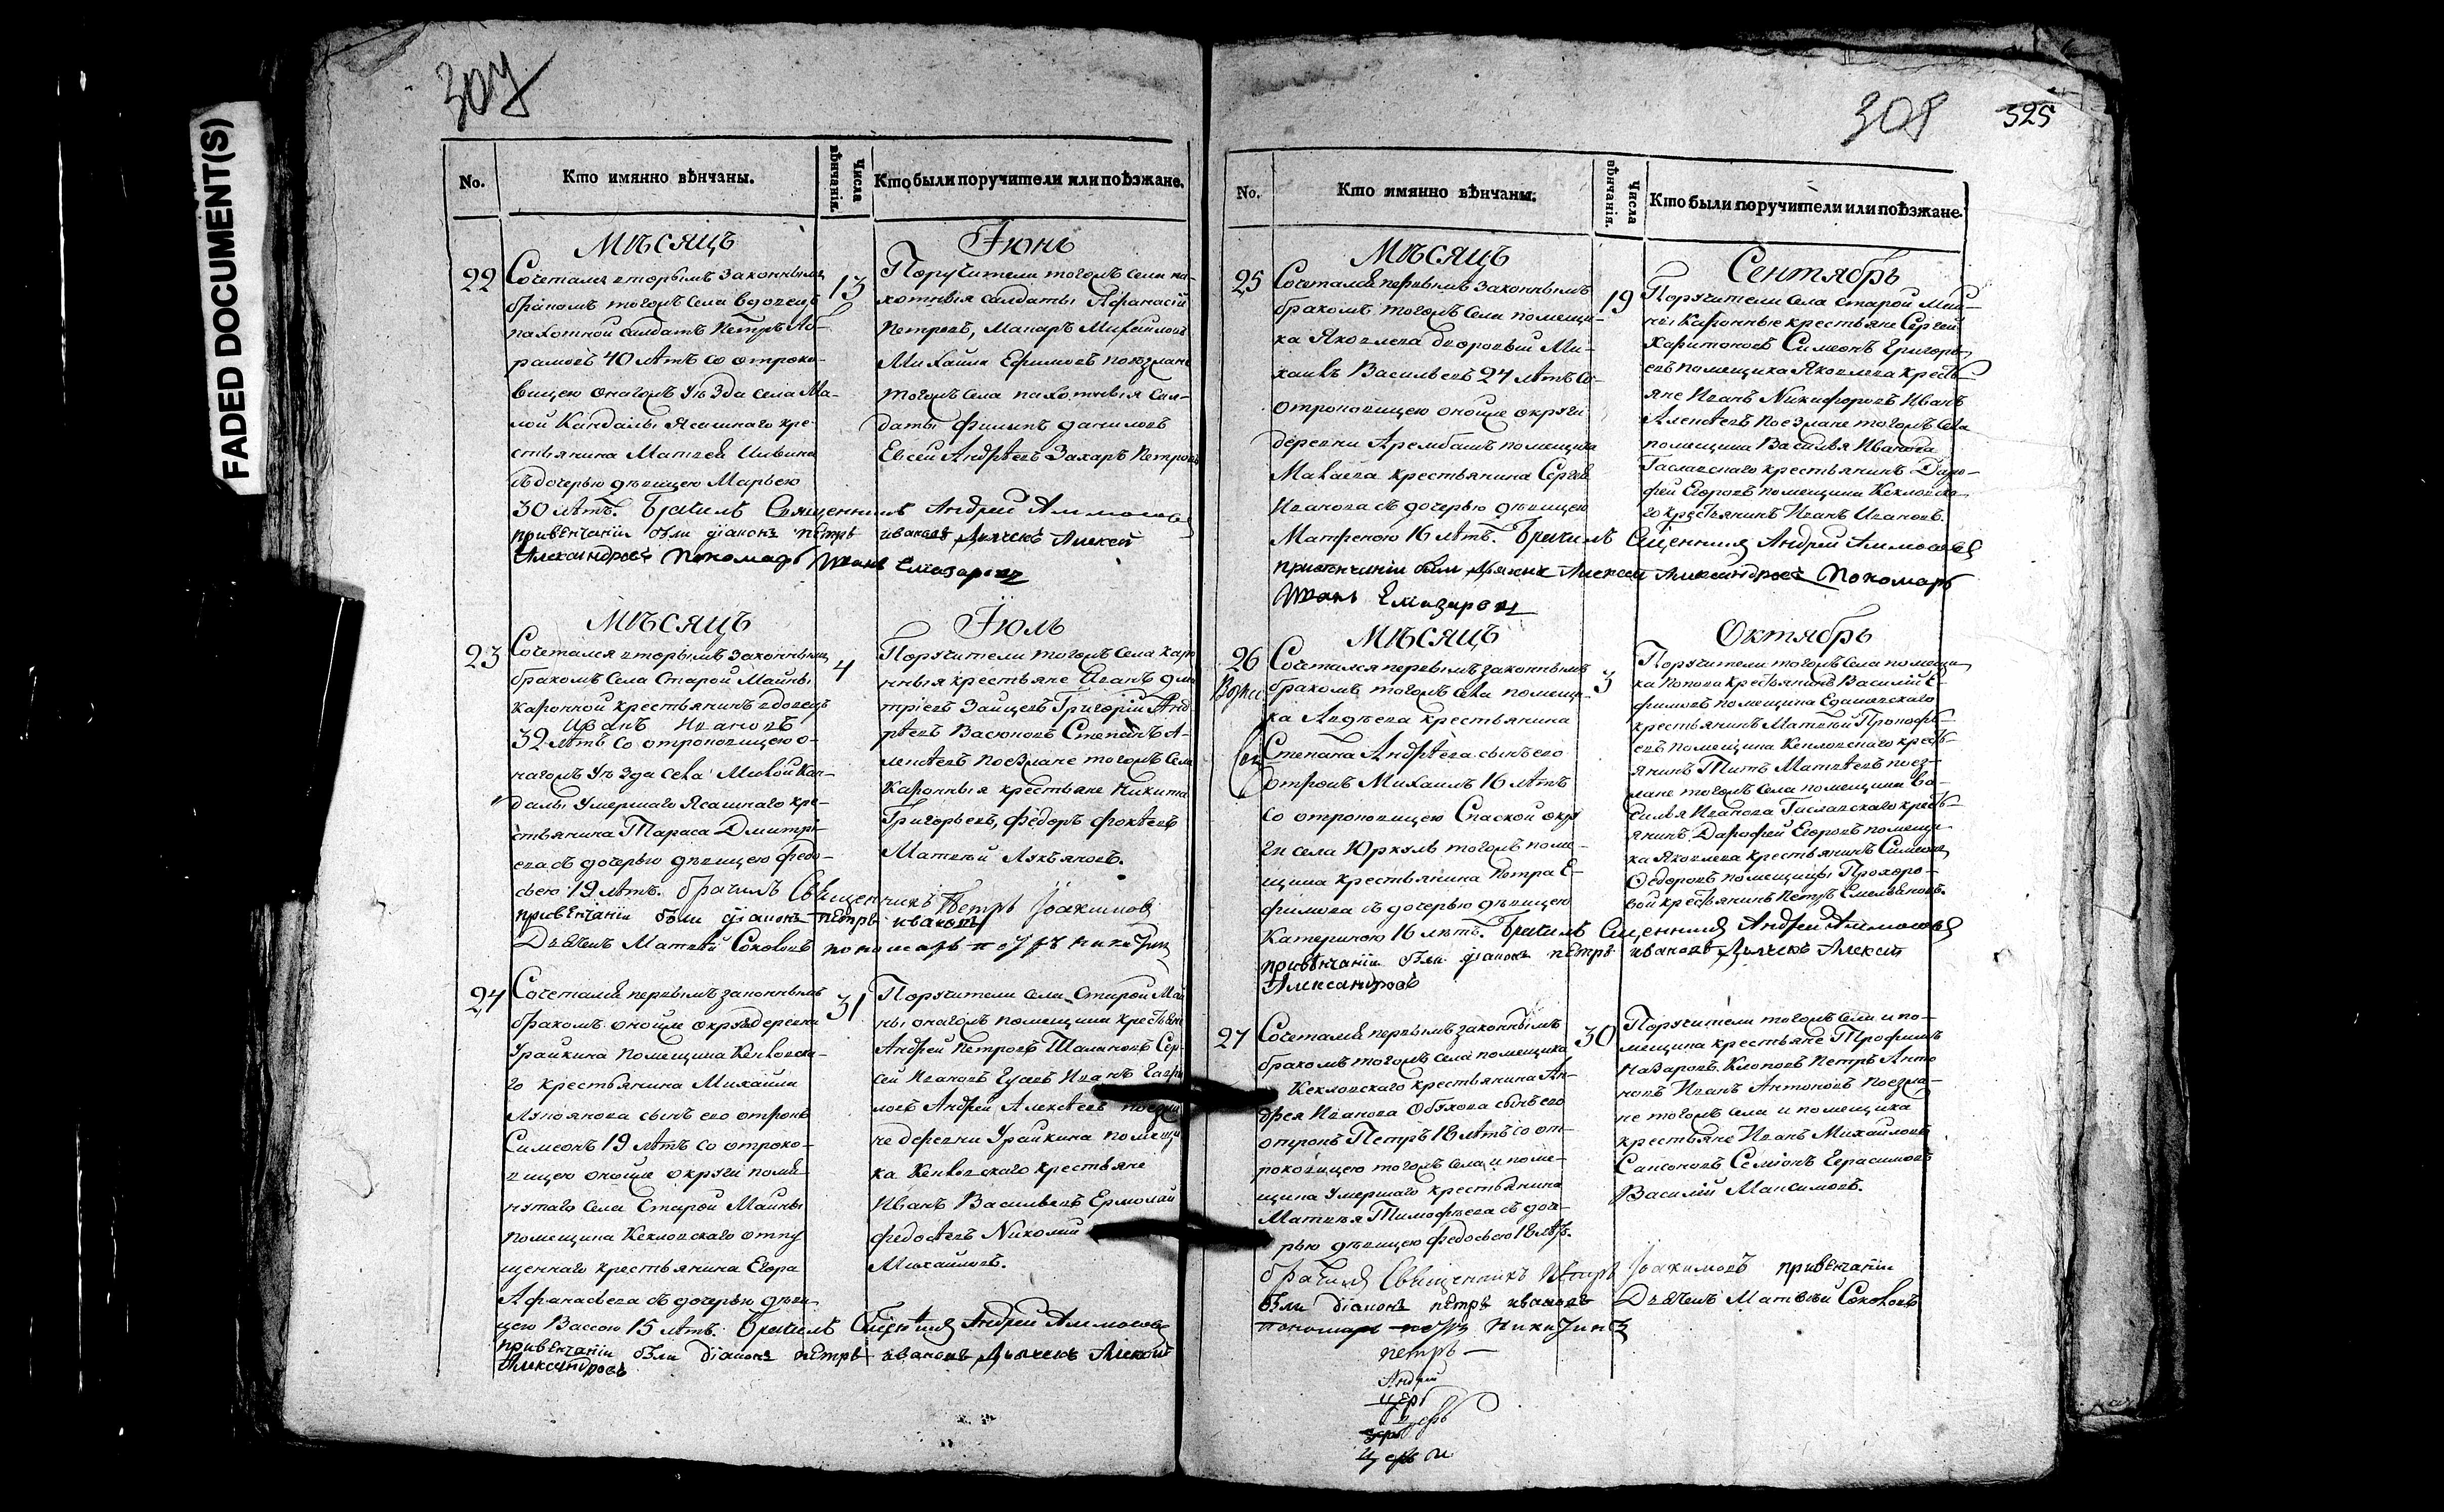 FADED DOCUMENT(S)
307
No.
Кто имянно вѣнчаны.
Числа вѣнчанія.
Кто были поручители или поѣзжане.
Мѣсяцъ
Іюнь
22
Сочетался вторымъ законнымъ
бракомъ тогожъ села вдовецъ
пахотной салдатъ Петръ Аб-
рамовъ 40 лѣтъ со отроко-
вицею онагожъ уѣзда села Ма-
лой Кандалы Ясашнаго кре-
стьянина Матвея
съ дочерью дѣвицею Марьею
30 лѣтъ. Брачилъ Священникъ Андрей Аммосовъ
привѣнчаніи были діаконъ петръ ивановъ Дьячекъ Алексей
Александровъ Пономарь Иванъ Елизаровъ
13
Поручители тогожъ села па-
хотныя салдаты Афанасій
Петровъ, Макаръ Михайловъ
Михайла Ефимовъ поезжане
тогожъ села пахотныя сал-
даты Филипъ Даниловъ
Евсей Андрѣевъ Захаръ Петровъ
Мѣсяцъ
Іюль
23
Сочетался вторымъ законнымъ
бракомъ села Старой Майны
каронной крестьянинъ вдовецъ
Иванъ Ивановъ
32 лѣтъ со отроковицею о-
нагожъ уѣзда села Малой Кан-
далы умершаго Ясашнаго кре-
стьянина Тараса Дмитрі-
ева съ дочерью дѣвицею Федо-
сьею 19 лѣтъ. брачилъ Священникъ Петръ Іоакимовъ
привѣнчаніи были діаконъ петръ ивановъ
Дьячекъ Матвѣй Соколовъ пономарь петръ никитинъ
4
Поручители тогожъ села каро-
нныя крестьяне Иванъ Дми-
тріевъ Зайцевъ Григорій Анд-
рѣевъ Васюковъ Степанъ А-
лексѣевъ поезжане тогожъ села
каронныя крестьяне Никита
Григорьевъ, Федоръ Фокѣевъ
Матвѣй Лукьяновъ.
24
Сочетался первымъ законнымъ
бракомъ оноиже округи деревни
Урайкина помещика Кекловска-
го крестьянина Михайлы
Лукоянова сынъ его отрокъ
Симеонъ 19 лѣтъ со отроко-
вицею оноиже округи помя-
нутаго села Старой Майны
помещика Кекловскаго отпу
щеннаго крестьянина Егора
Афанасьева съ дочерью дѣви-
цею Вассою 15 лѣтъ. брачилъ Священникъ Андрей Аммосовъ
привѣнчаніи были діаконъ петръ ивановъ Дьячекъ Алексей
Александровъ
31
Поручители села Старой Май
ны онагожъ помещика крестьяне
Андрей Петровъ Шалановъ Сер-
гей Ивановъ Гусевъ Иванъ Гаври
ловъ Андрей Алексѣевъ поезжа
не деревни Урайкина помещи
ка Кекловскаго крестьяне
Иванъ Васильевъ Ермолай
Федосѣевъ Николай
Михайловъ.
308
325
No.
Кто имянно вѣнчаны.
Числа вѣнчанія.
Кто были поручители или поѣзжане.
Мѣсяцъ
Сентябрь
25
Сочетался первымъ законнымъ
бракомъ тогожъ села помещи-
ка Яковлева дворовый Ми-
хаилъ Васильевъ 24 лѣтъ со
отроковицею оноиже округи
деревни Арембашъ помещика
крестьянина Сергея
Иванова съ дочерью дѣвицею
Матреною 16 лѣтъ. Брачилъ Священникъ Андрей Аммосовъ
привенчаніи были Дьячекъ Алексей Александровъ Пономарь
Иванъ Елизаровъ
19
Поручители села Старой Май-
ны каронные крестьяне Сергей
Харитоновъ Симеонъ Григорь-
евъ помещика Яковлева кресть-
яне Иванъ Никифоровъ Иванъ
Алексѣевъ поезжане тогожъ села
помещика Василья Иванова
Гаславскаго крестьянинъ Даро-
фей Егоровъ помещика Кекловска-
го крестьянинъ Иванъ Ивановъ.
Мѣсяцъ
Октябрь
26
Сочетался первымъ законнымъ
бракомъ тогожъ села помещи-
ка Авдѣева крестьянина
Степана Андрѣева сынъ его
отрокъ Михаилъ 16 лѣтъ
со отроковицею Спаской окру
ги села Юркуль тогожъ поме-
щика крестьянина Петра Е-
фимова съ дочерью дѣвицею
Катериною 16 лѣтъ. Брачилъ Священникъ Андрей Аммосовъ
привѣнчаніи были діаконъ петръ ивановъ Дьячекъ Алексей
Александровъ
3
Поручители тогожъ села помещи
ка Попова крестьянинъ Василій Е-
фимовъ помещика
крестьянинъ Матвѣй Прокофь-
евъ помещика Кекловскаго кресть-
янинъ Титъ Матвѣевъ поез-
жане тогожъ села помещика Ва-
силья Иванова Гаславскаго кресть-
янинъ Дарофей Егоровъ помещи
ка Яковлева крестьянинъ Симеонъ
Федоровъ помещицы Прохоро-
вой крестьянинъ Петръ Емельяновъ.
27
Сочетался первымъ законнымъ
бракомъ тогожъ села помещика
Кекловскаго крестьянина Ан-
дрея Иванова Обухова сынъ его
отрокъ Петръ 18 лѣтъ со от-
роковицею тогожъ села и поме-
щика умершаго крестьянина
Матвея Тимофѣева съ доче-
рью дѣвицею Федосьею 18 лѣтъ.
брачилъ Священникъ Петръ Іоакимовъ привѣнчаніи
были діаконъ петръ ивановъ Дьячекъ Матвѣй Соколовъ
пономарь петръ Никитинъ
30
Поручители тогожъ села и по-
мещика крестьяне Трофимъ
Назаровъ Клоповъ Петръ Анто
новъ Иванъ Антоновъ поезжа-
не тогожъ села и помещика
крестьяне Иванъ Михайловъ
Сапоновъ Семіонъ Герасимовъ
Василій Максимовъ.
петръ
Андрей